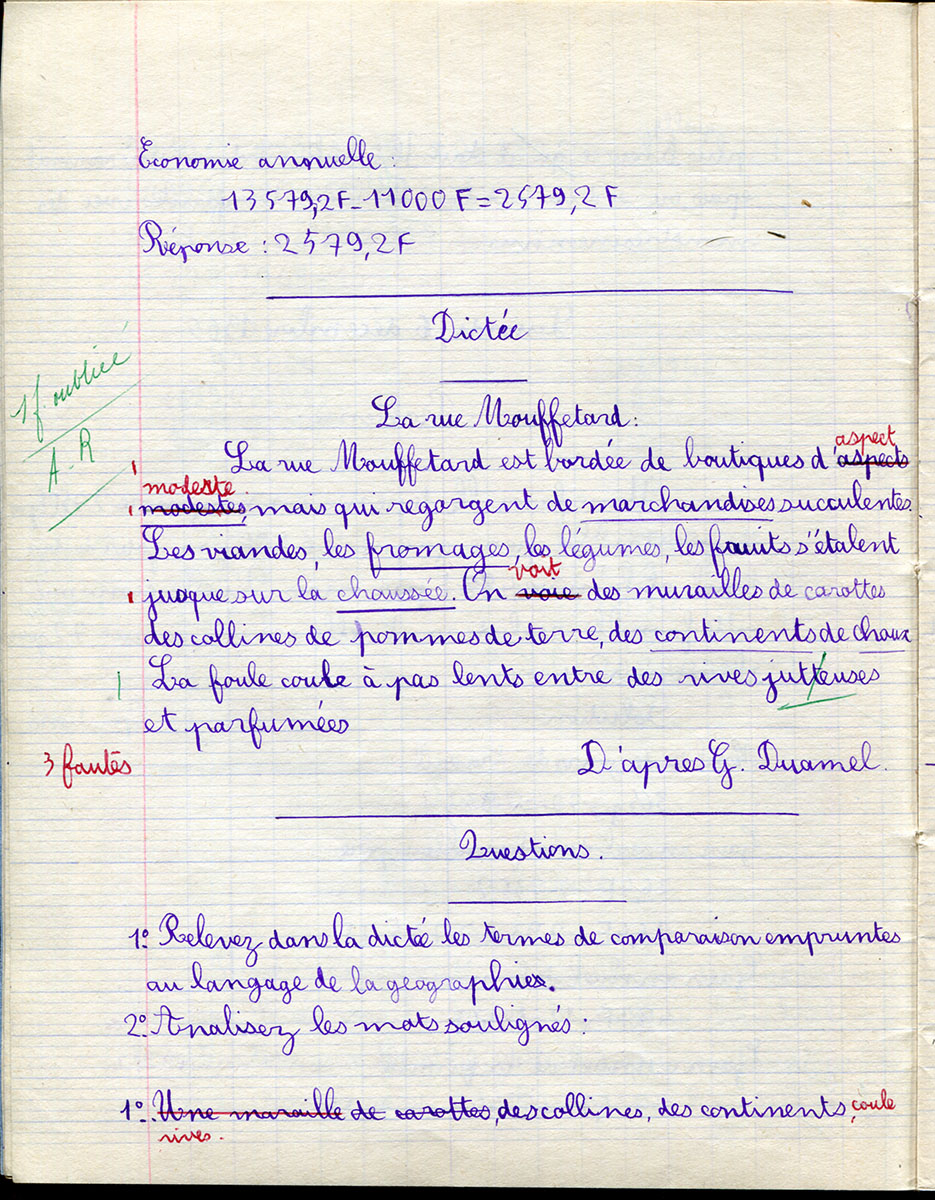 Economie annuelle :
13579,2F - 11000 F = 2579,2 F
Réponse : 2579,2F
Dictée
1 f. oubliée
A-R
La rue Mouffetard :
aspect
La rue Mouffetard est bordée de boutiques d'aspects
modeste
modestes, mais qui regorgent de marchandises succulentes.
Les viandes, les fromages, les légumes, les fruits s'étalent
voit
jusque sur la chaussée. On voie des murailles de carottes
des collines de pommes de terre, des continents de choux
La foule coule à pas lents entre des rives jutteuses
et parfumées
3 fautes
D'apres G. Duamel.
Questions.
1º. Relevez dans la dictée les termes de comparaison empruntes
au langage de la geographies.
2º. Analisez les mots soulignés :
1º. Une muraille de carottes, des collines, des continents, coule
rives.